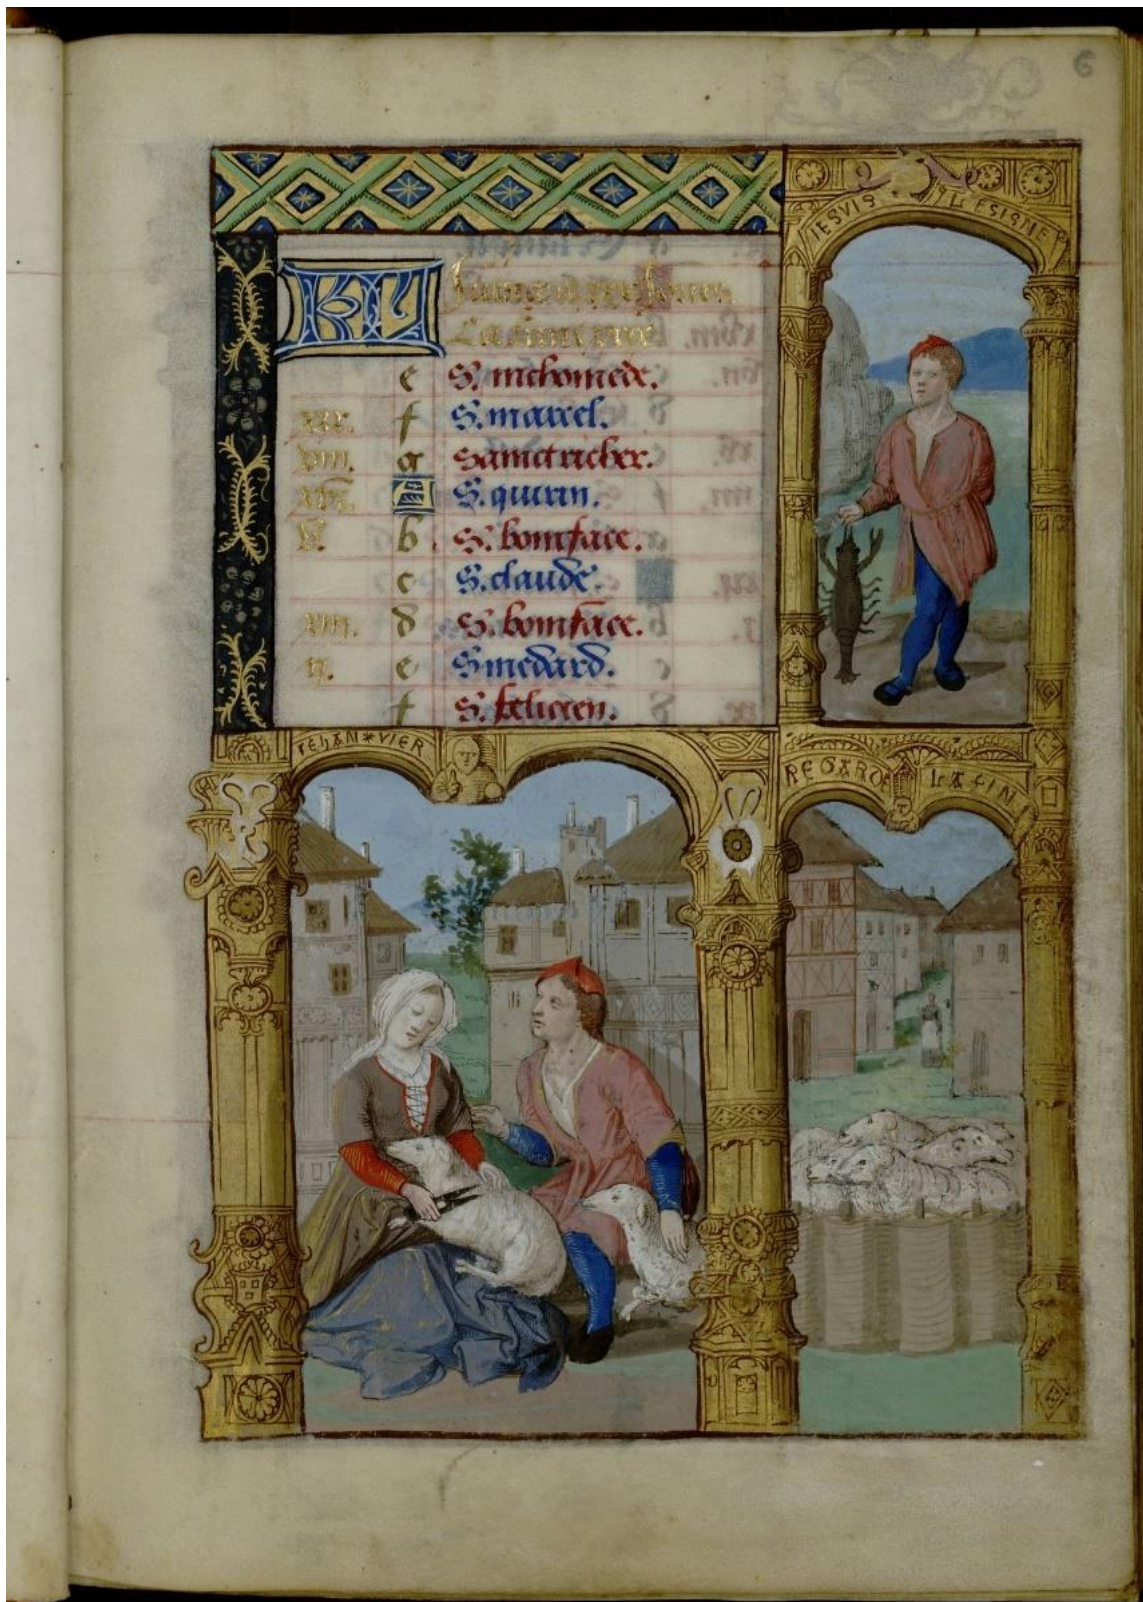 6
IESVIS LESIGNE
KL Juing a xxx Jours
La lune xxix
e S. nichomede.
xix. f S. marcel.
viii. g Sainct richer.
xvi. A S. quirin.
v. b S. boniface.
c S. claude.
xiii. d S. boniface.
ii. e S medard.
f S. felicien.
IEHAN*VIER
REGARD LA FIN